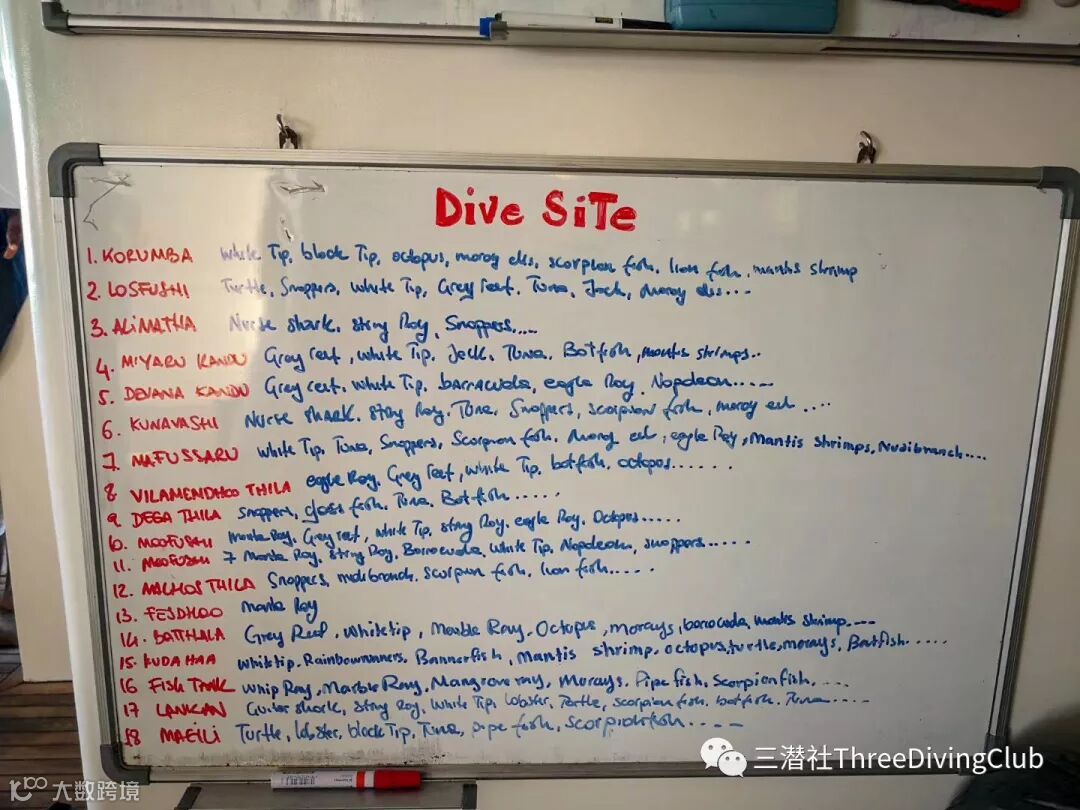 Dive SiTe
1. KORUMBA White Tip, block Tip, octopus, moray ells, scorpion fish, lion fish, mantis shrimp
2. LOSFUSHI Turtle, Snappers, White Tip, Grey reef, Tuna, Jack, Moray ells....
3. ALIMATHA Nurse shark, string Ray, Snappers....
4. MIYARU KANDU Grey reef, White Tip, Jeck, Tuna, Botfish, mantis shrimps..
5. DEVANA KANDU Grey reef, White Tip, barracuda, eagle Ray, Napoleon.....
6. KUNAVASHI Nurse shark, string Ray, Tuna, Snappers, scorpion fish, moray eel ....
7. NAFUSSARU White Tip, Tuna, Snappers, Scorpion fish, Moray eel, eagle Ray, Mantis shrimps, Nudibranch....
8 VILAMENDHOO THILA eagle Ray, Grey reef, white Tip, botfish, octopos......
9. DEGA THILA Snappers, glass fish, Tuna, Botfish.....
10. MOOFUSHI manta Ray, Grey reef, white Tip, string Ray, eagle Ray, Octopus.....
11. MOOFUSHI 7 Manta Ray, string Ray, Borrocuda, White Tip, Napoleon, snappers.....
12. MACHOS THILA Snoppers, nudibranch, scorpion fish, lion fish.....
13. FESDHOO manta Ray
14. BATHALA Grey Reef, Whitetip, Marble Ray, Octopus, morays, borrocuda, mantis shrimp....
15. KUDA HAA Whitetip, Rainbowrunners, Bannerfish, Mantis shrimp, octopus, turtle, morays, Batfish.....
16 FISH TANK Whip Ray, Marble Ray, Mangrove ray, Morays, Pipe fish, Scorpionfish....
17 LANKAN Guitar shark, String Ray, White Tip, lobster, Turtle, scorpion fish, botfish, Tuna.....
18 MAEILI Turtle, lobster, block Tip, Tuna, pipe fish, Scorpionfish.....
三潜社ThreeDivingClub
大数跨境